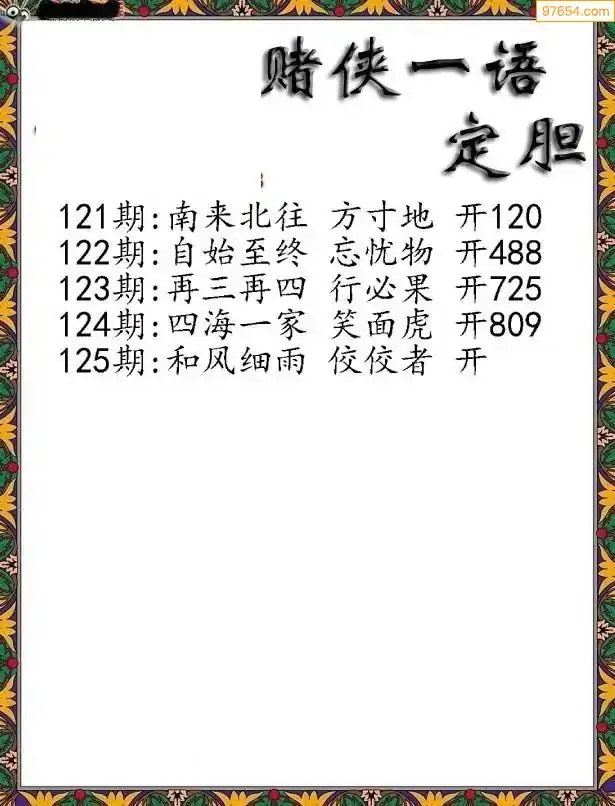 97654.com
赌侠一语
定胆
121期:南来北往 方寸地 开120
122期:自始至终 忘忧物 开488
123期:再三再四 行必果 开725
124期:四海一家 笑面虎 开809
125期:和风细雨 佼佼者 开